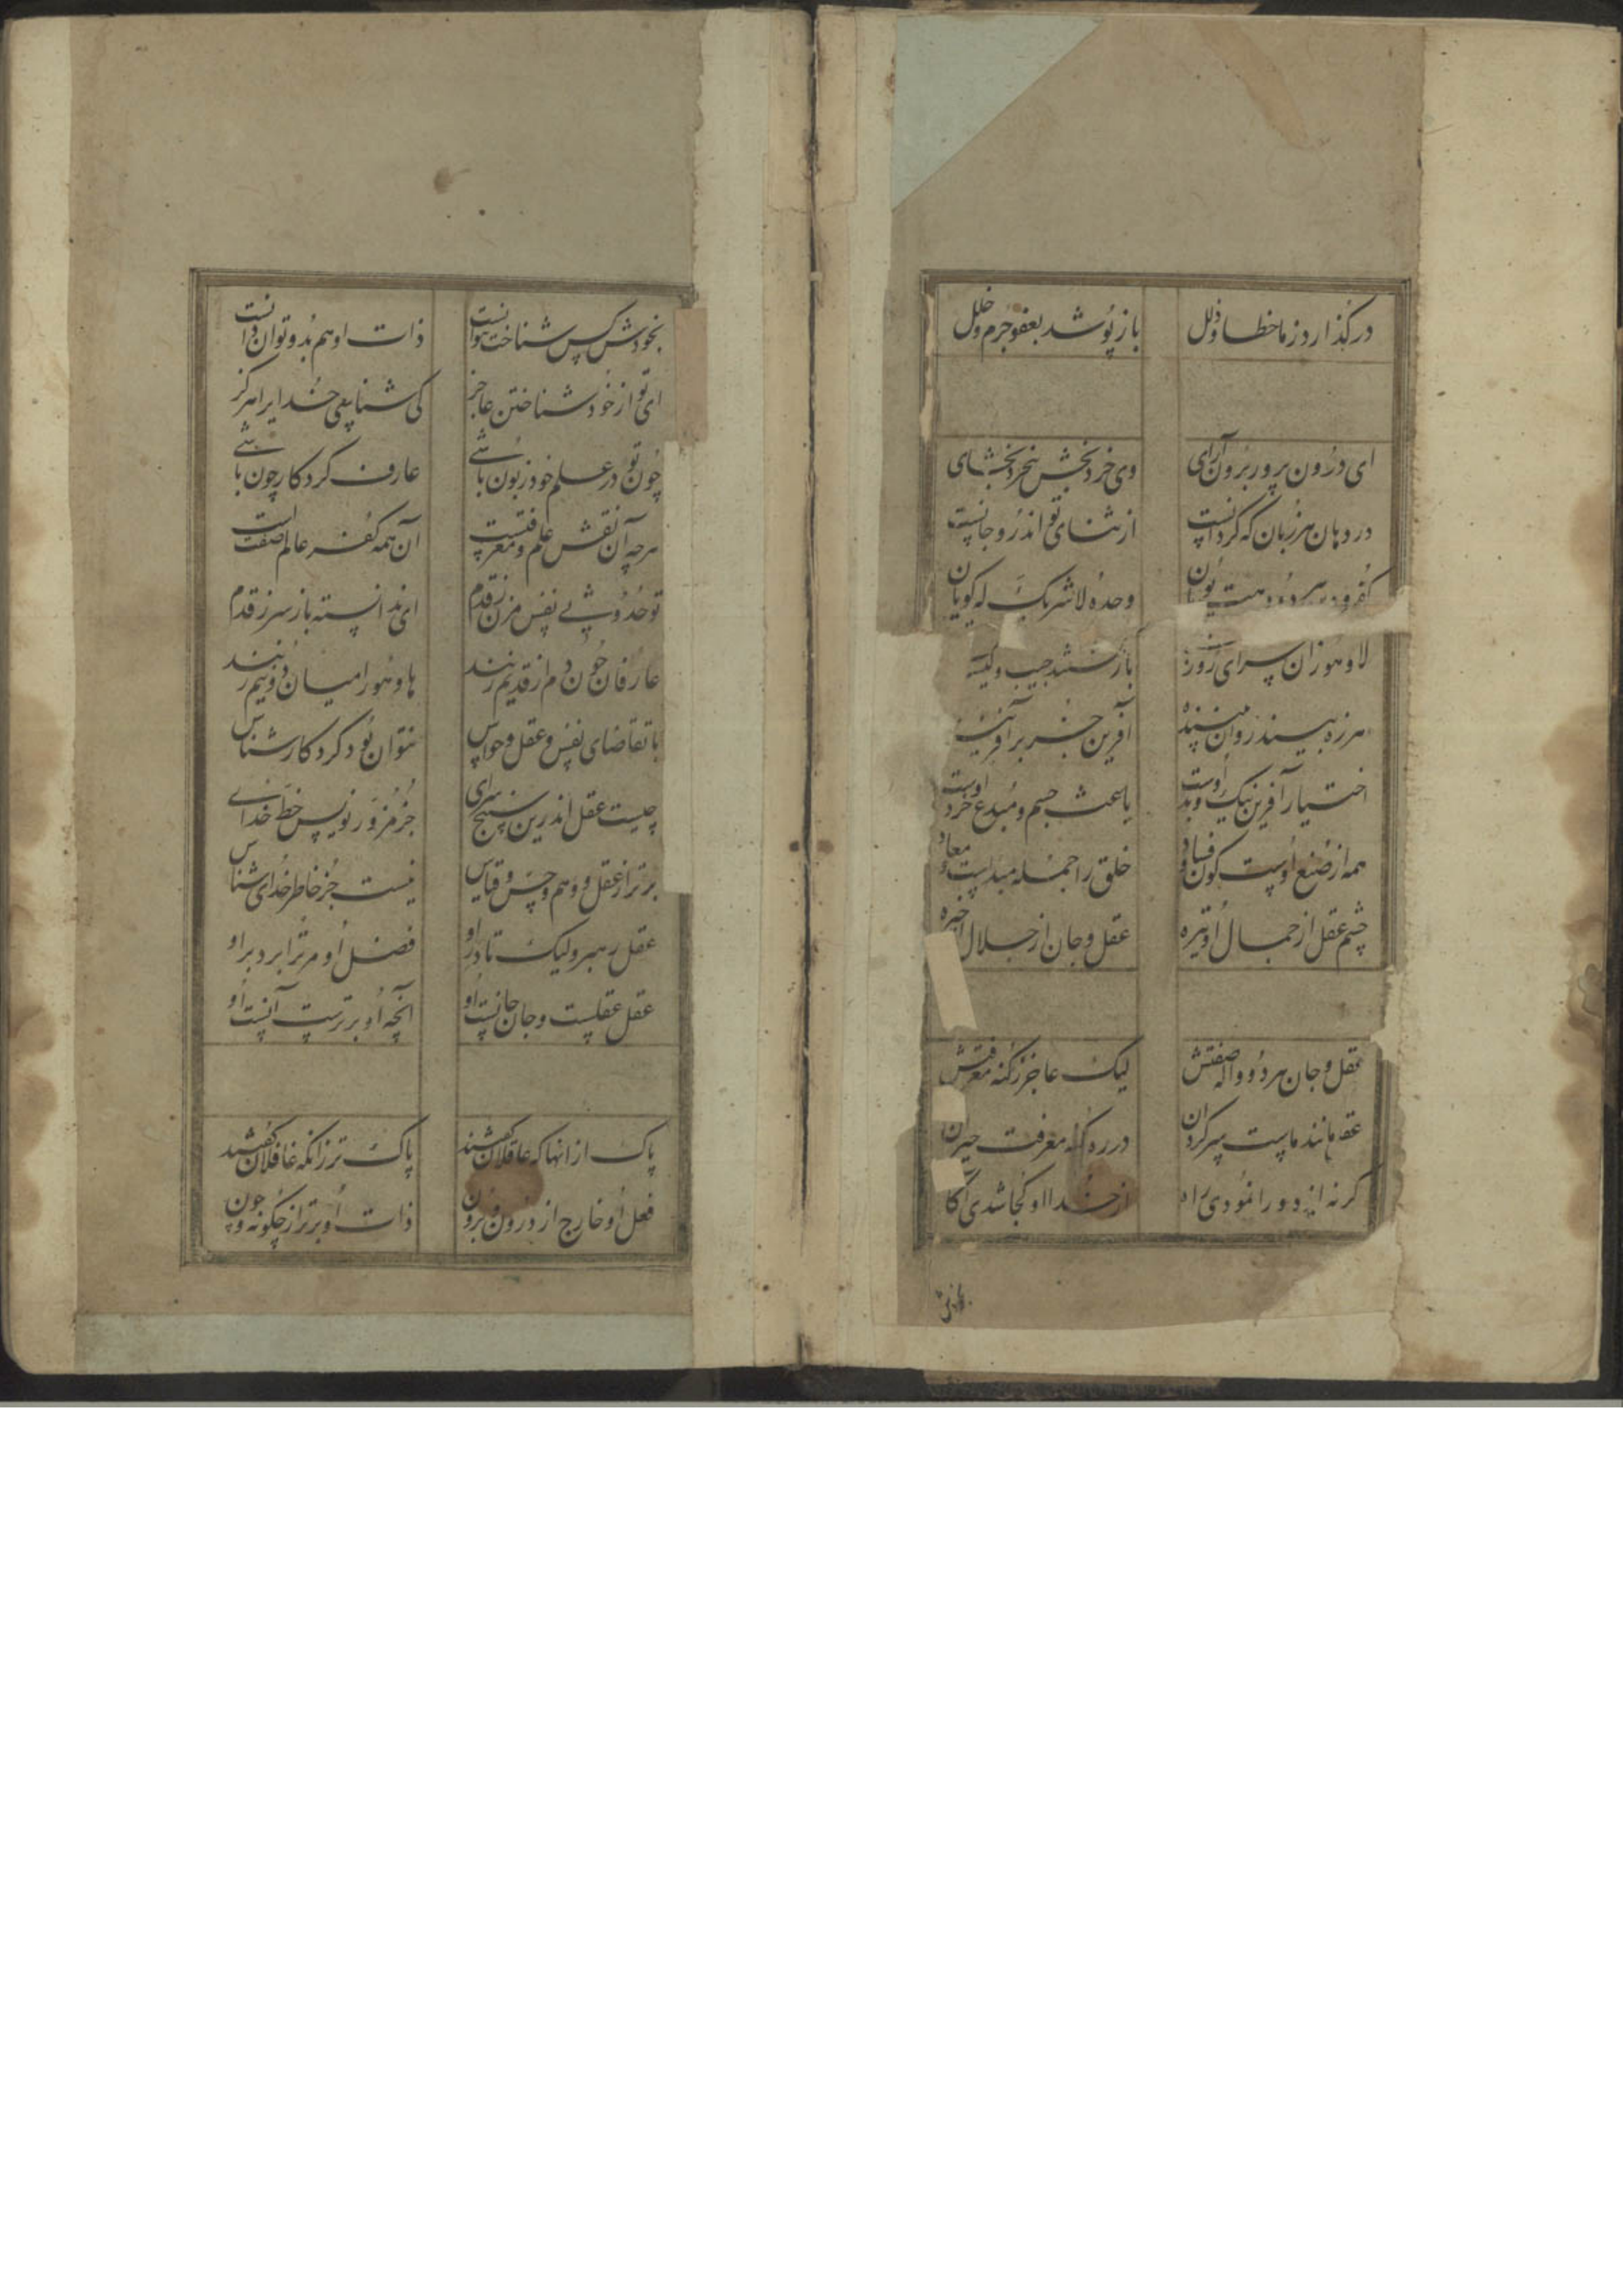 درگذارد ز ما خطا و ذلل باز پوشد بعفو جرم و خلل
ای درون پرور برون آرای وی خرد بخش بیخرد بخشای
در دهان هر زبان که گردانست از ثنای تو اندرو جانست
وحده لا شریک له گویان
لا و هو زان سرای
باز گشتند جیب و کیسه
آفرین جز بر آفریننده
اختیار آفرین نیک و بد اوست باعث جسم و مبدع خرد اوست
همه از صنع اوست کون و فساد خلق را جمله مبداست و معاد
چشم عقل از جمال او تیره عقل و جان از جلال او خیره
عقل و جان هر دو واله صفتش لیک عاجز ز کنه معرفتش
عقل مانند ماست سرگردان در ره کنه معرفت حیران
گر نه ایزد ورا نمودی راه از خدا او کجا شدی آگاه
بخودش کس شناخت نتوانست ذات او هم بدو توان دانست
ای تو از خود شناختن عاجز کی شناسی خدایرا هرگز
چون تو در علم خود زبون باشی عارف کردکار چون باشی
هرچه آن نقش علم و معرفتست آن همه کفر عالم صفتست
تو حدوثی نفس مزن ز قدم ای ندانسته باز سر ز قدم
عارفان چون دم از قدیم زنند ها و هو را میان دو نیم زنند
با تقاضای نفس و عقل و حواس نتوان بود کردکار شناس
چیست عقل اندرین سپنج سرای جز مزور نویس خط خدای
برتر از عقل و وهم و حس و قیاس نیست جز خاطر خدای شناس
عقل رهبر ولیک تا در او فضل او مر ترا برد بر او
عقل عقلست و جان جانست او آنچه او برترست آنست او
پاک از انها که عاقلان گفتند پاک تر زانکه غافلان گفتند
فعل او خارج از درون و برون ذات او برتر از چگونه و چون